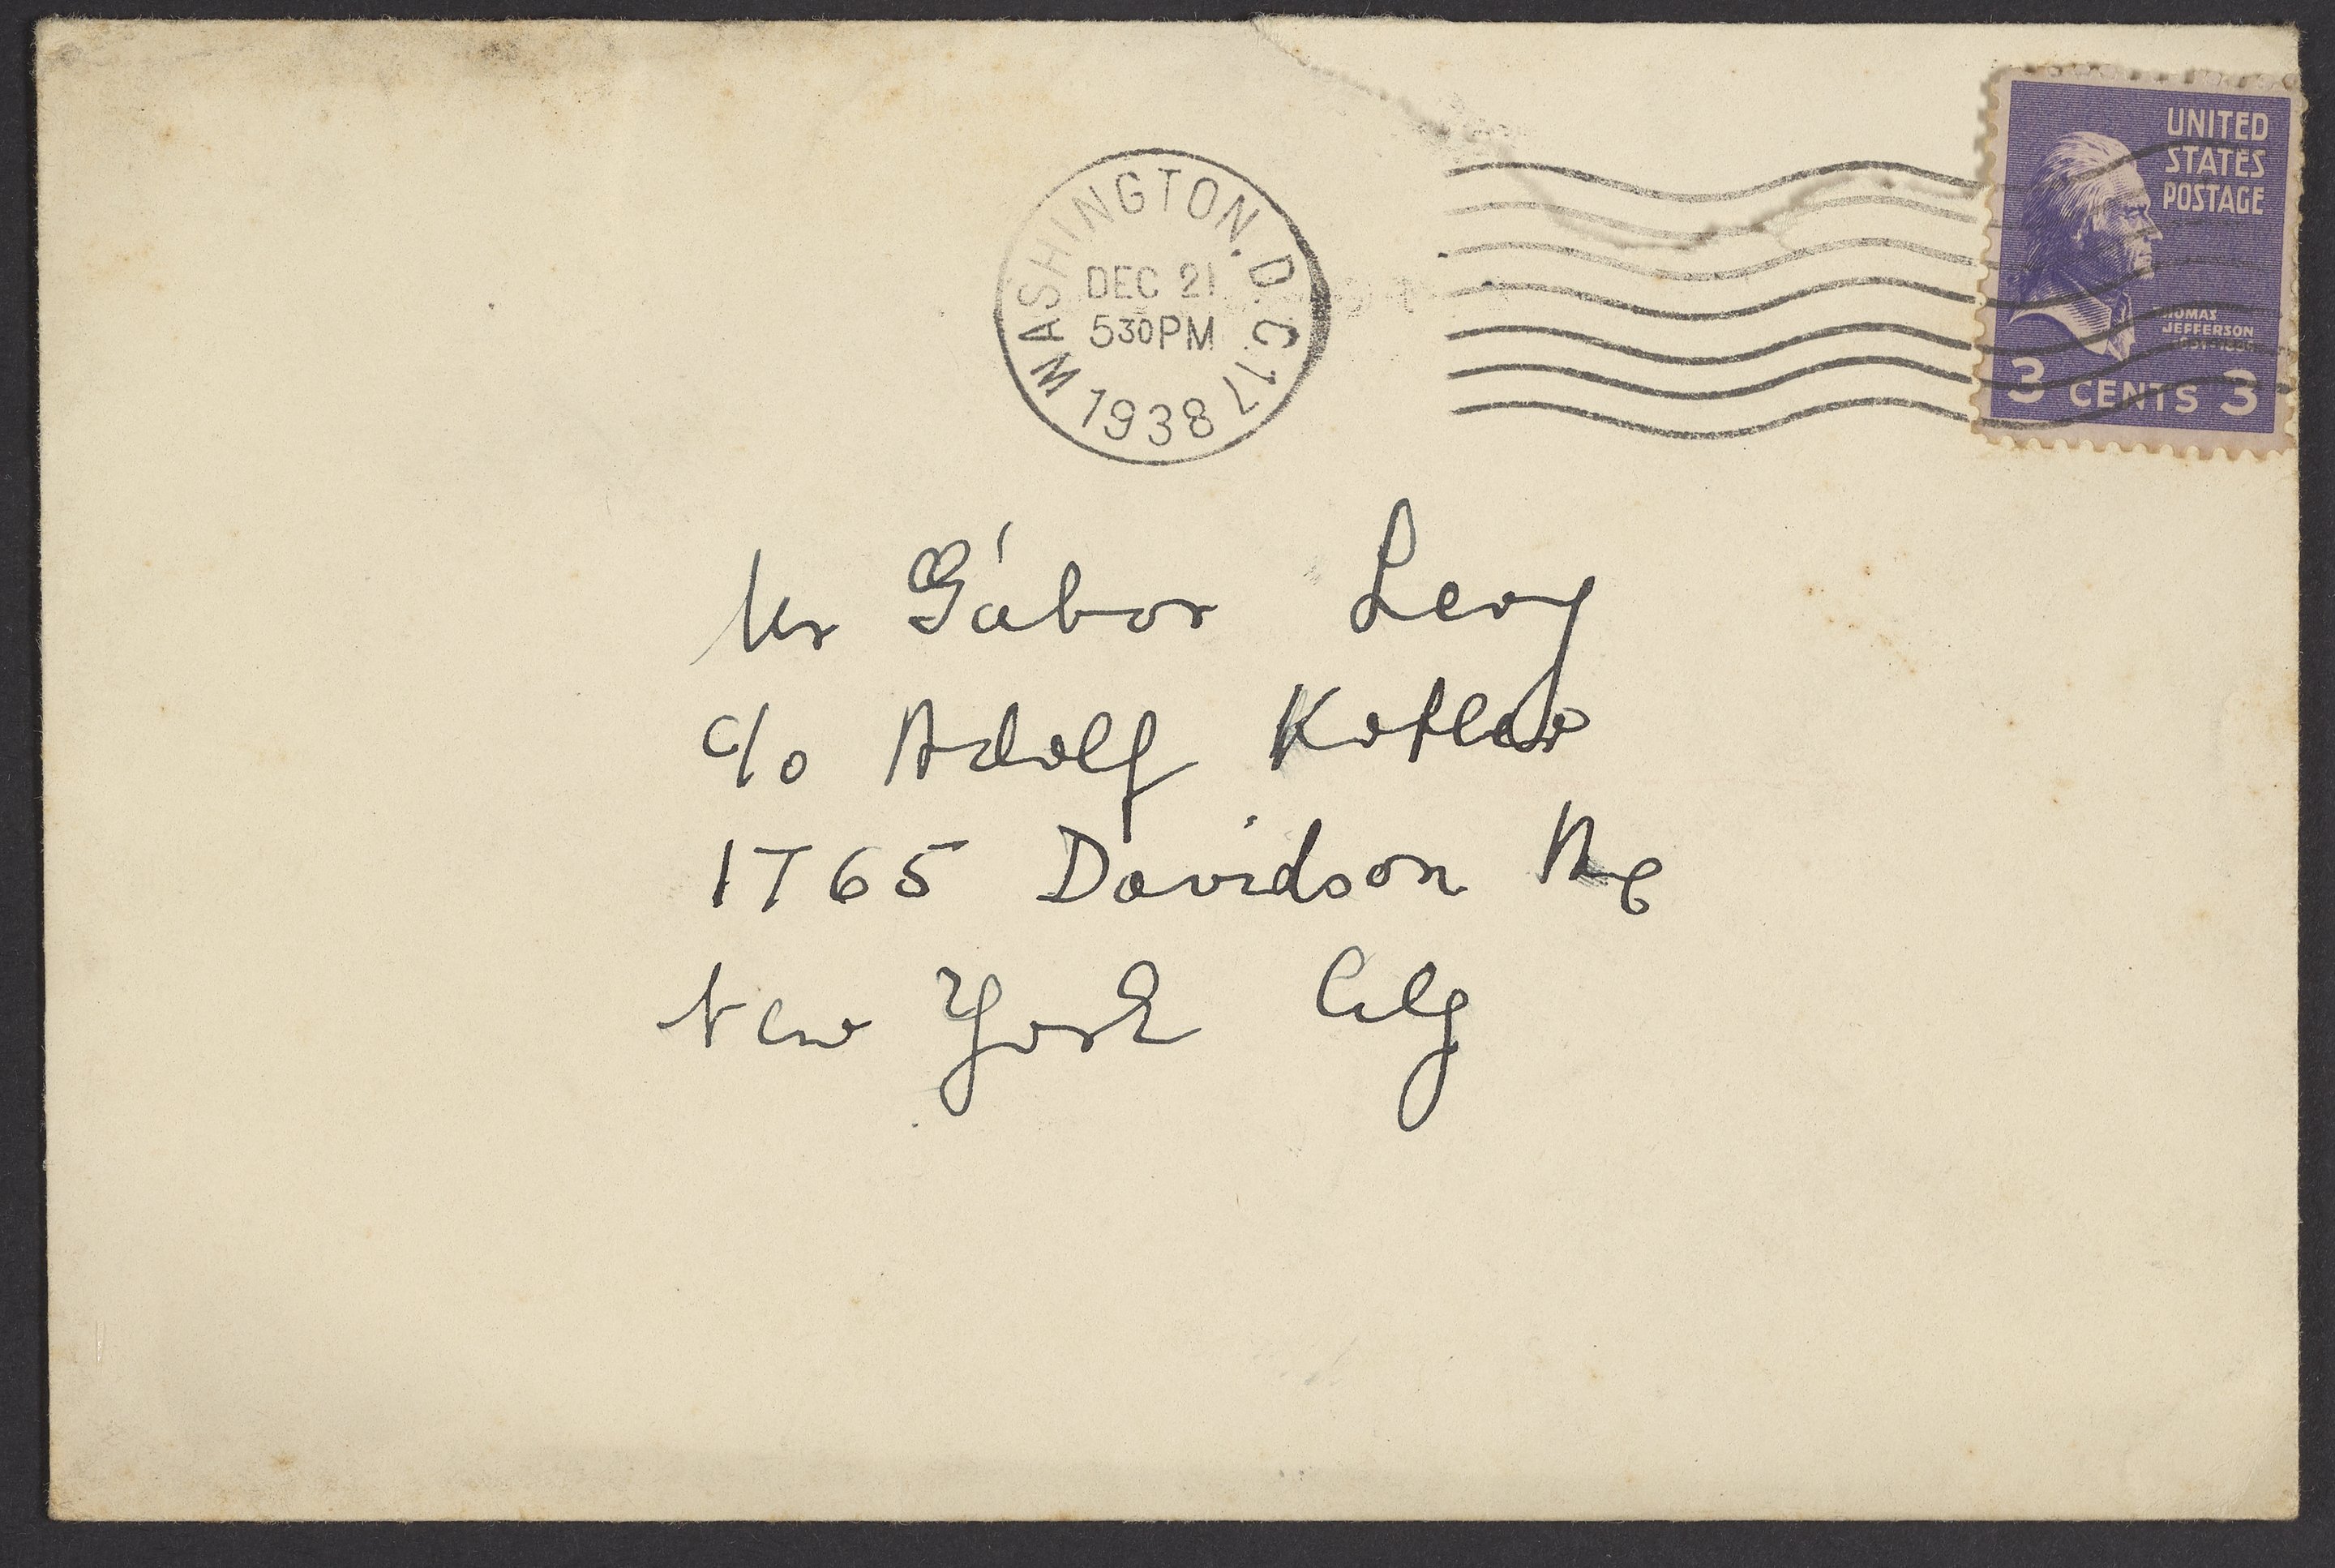 UNITED
STATES
POSTAGE
WASHINGTON. D C 17
DEC 21
530PM
1938
THOMAS
JEFFERSON
3 CENTS 3
Mr Gábor Levy
c/o Adolf
1765 Davidson Ave
New York City